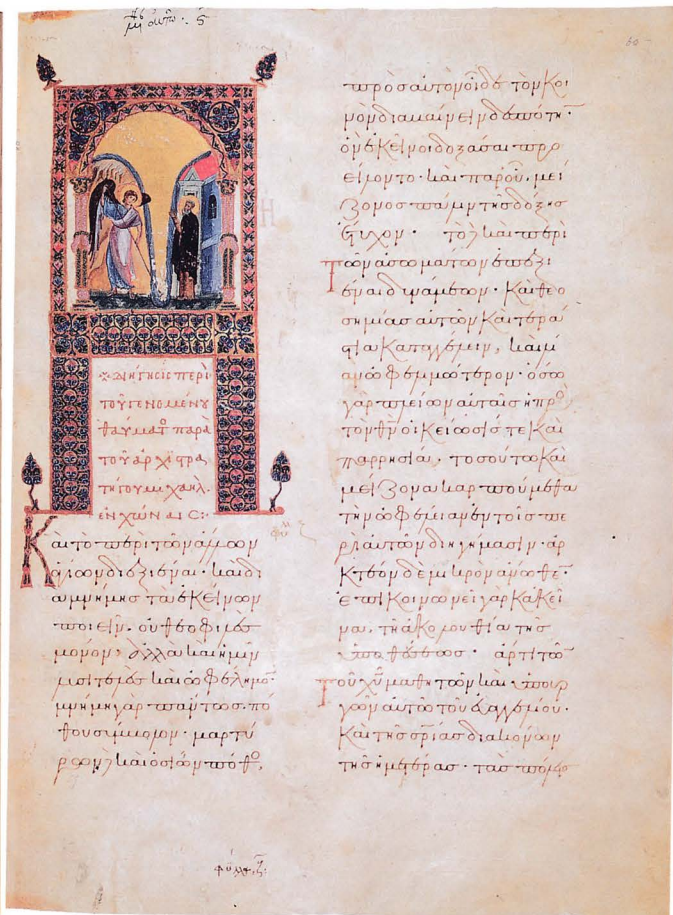 μη(νὶ) σεπτ(εμβρίω) ς
60
διήγησις περὶ
τοῦ γενομένου
θαύματο παρὰ
τοῦ ἀρχιστρα
τήγου μιχαὴλ
ἐν χώναις:
Καὶ τὸ περὶ τῶν ἁγίων
διεξιέναι· καὶ δι
ὰ μνήμης τὰ ἐκείνων
ποιεῖν, οὐ θεοφιλὲς
μόνον, ἀλλὰ καὶ ἡμῖν
καὶ ὠφέλιμο
μνήμη γὰρ πάντως πό
μαρτύ
ρων καὶ ὁσίων πόθο
πρὸς αὐτὸν οἶδε τὸν κοι
νὸν διαμαίνειν δεσπότην·
ὃν ἐκεῖνοι δοξάσαι προ
είλοντο· καὶ παρ' οὗ, μεί
ζονος πάλιν τῆς δόξης
ἔτυχον· τὸ καὶ περὶ
τῶν ἀσωμάτων ἐπεξι
έναι δυνάμεων· καὶ θεο
σημίας αὐτῶν καὶ τερά
στια καταλέγειν, καὶ
ὠφελιμώτερον· ὅσω
γὰρ πλείων αὐταῖς ἡ πρὸ
τὸν θν οἰκείωσίς τε καὶ
παρρησία, τοσούτω καὶ
μείζονα καρπούμεθα
τὴν ὠφέλειαν ἐν τοῖς πε
ρὶ αὐτῶν διηγήμασιν· ἀρ
κτέον δὲ μικρὸν ἄνωθεν
ἐπικοινωνεῖ γὰρ κἀκεῖ
να, τῆ ἀκολουθία τῆς
ὑποθέσεως· ἄρτι τῶν
τοῦ χυ μαθητῶν καὶ ὑπουρ
γῶν αὐτῶ τοῦ εὐαγγελίου·
καὶ τῆς σρίας διακόνων
τῆς ἡμετέρας· τὰς πόλεις
φύλλα ζ: